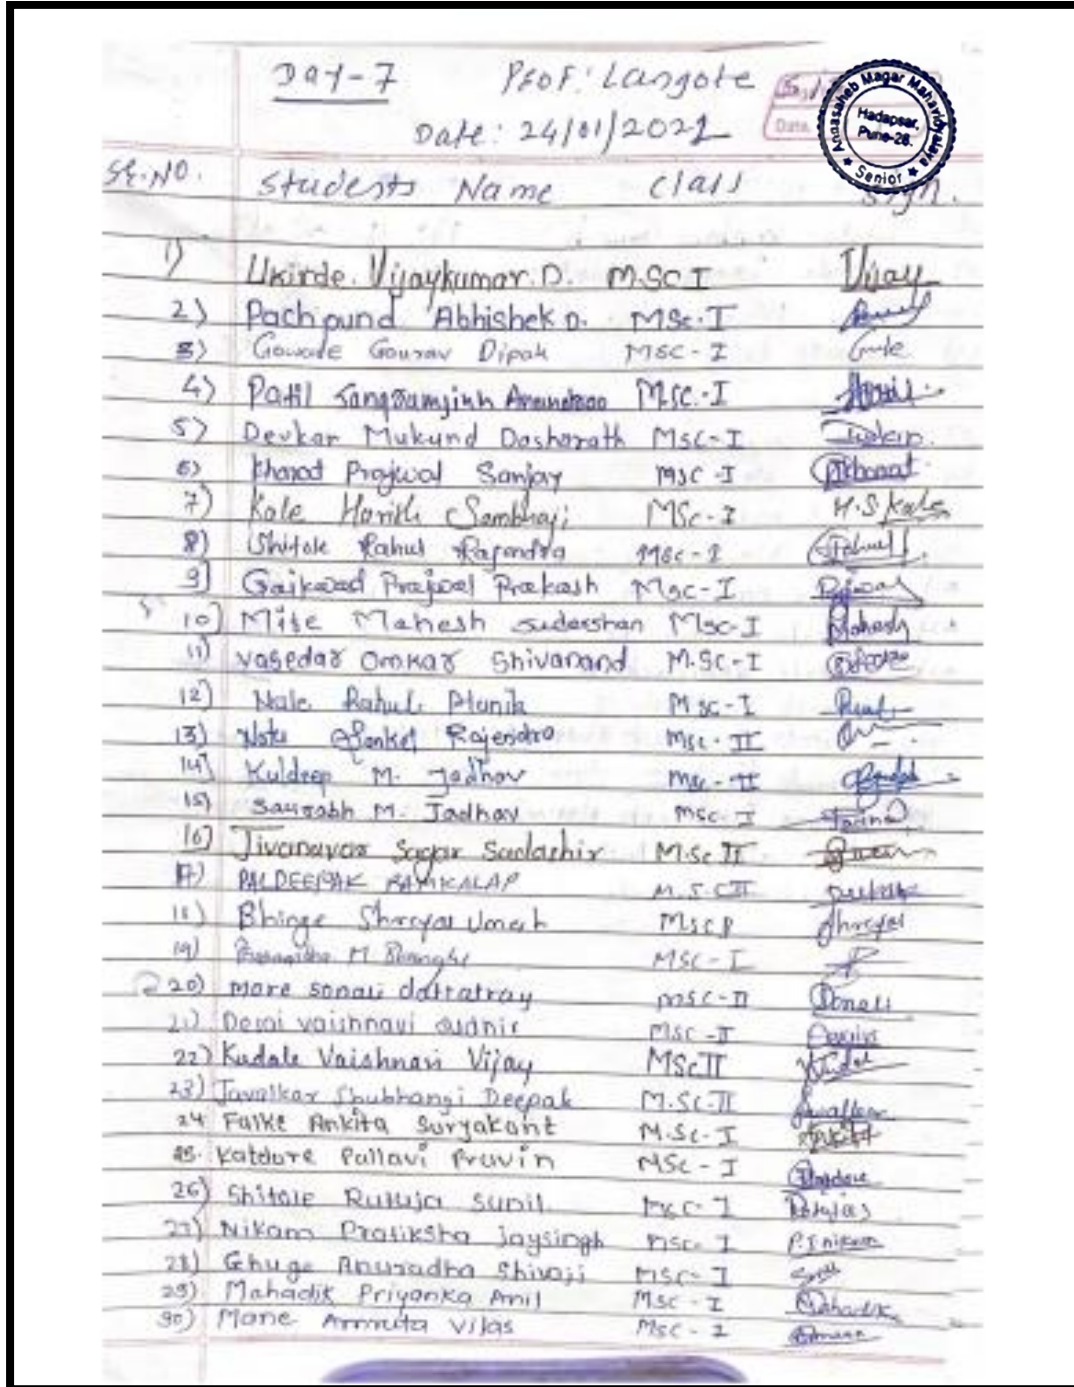 Day-7 Prof: Langote
Date: 24/01/2022
Annasaheb Magar Mahavidyalaya
Hadapsar,
Pune-28.
★ Senior ★
Date
Sr.No. Students Name Class Sign.
1) Ukirde. Vijaykumar. D. M.Sc I Vijay
2) Pachpund Abhishek D. MSc-I
3) Gowade Gourav Dipak MSC-I
4) Patil Sangramsinh Anandrao M.SC.-I
5) Devkar Mukund Dasharath MSC-I
6) Kharad Prajwal Sanjay MSC-I
7) Kale Harish Sambhaji MSc-I H.S.Kale
8) Shitole Rahul Rajendra MSc-I
9) Gaikwad Prajwal Prakash Msc-I
10) Mise Mahesh sudarshan Msc-I Mahesh
11) vasedar Omkar Shivanand M.Sc-I
12) Nale Rahul Msc-I
13) Rajendra Msc-II
14) Kuldeep M. Jadhav Msc-II
15) Saurabh M. Jadhav MSC-I
16) Jivanavar Sagar Sadashiv M.Sc II
17) PAL DEEPAK RAMKALAP M.S.C II
18) Bhinge Shreyas Umesh Shreyas
19) M MSC-I
20) more sonali dattatray MSC-II Sonali
21) Desai vaishnavi sudhir MSC-II
22) Kudale Vaishnavi Vijay MSc II
23) Javalkar Shubhangi Deepak M.Sc-II
24 Falke Ankita Suryakant M.Sc-I
25. Katdare Pallavi Pravin MSc-I
26) Shitole Rutuja Sunil MSC-I
27) Nikam Pratiksha Jaysingh MSC-I P.J nikam
28) Ghuge Anuradha Shivaji MSC-I
29) Mahadik Priyanka Anil MSC-I
30) Mane Amruta Vilas MSC-I